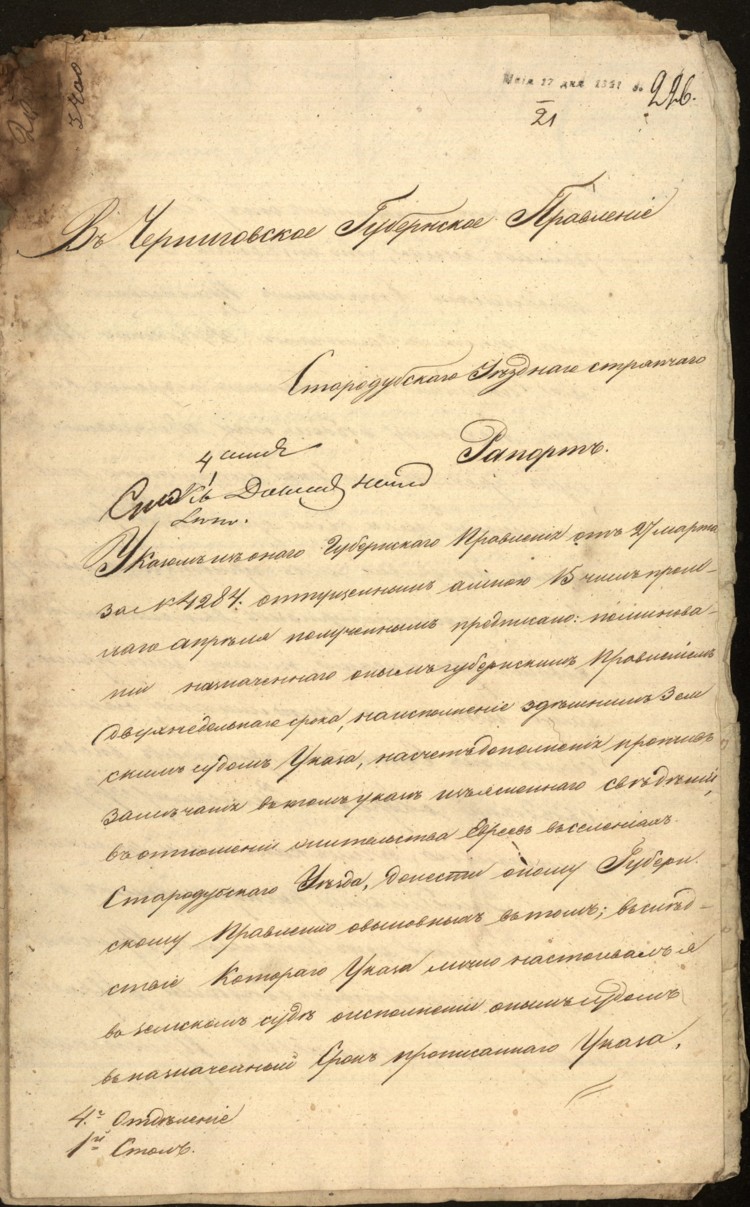 Мая 17 дня 1851
226.
21
Въ Черниговское Губернское Правленіе
Стародубскаго Уѣзднаго стряпчаго
Рапортъ.
Указомъ изъ онаго Губернскаго Правленія отъ 27 марта
за № 4284. отпущеннымъ а мною 15 числъ прош-
лаго апрѣля полученнымъ предписано: по минова-
ніи назначеннаго онымъ губернскимъ Правленіемъ
двухнедѣльнаго срока, на исполненіе здѣшнимъ Зем
скимъ судомъ Указа, на счетъ дополненія противъ
замѣчанія въ томъ указѣ изъясненнаго свѣдѣній,
въ отношеніи жительства Евреевъ въ селеніяхъ
Стародубскаго Уѣзда, донести оному Губерн
скому Правленію о виновныхъ въ томъ; въ слѣд-
ствіе Котораго Указа лично настоивалъ я
въ земскомъ судѣ о исполненіи онымъ судомъ
въ назначенный Срокъ прописаннаго Указа,
4.е Отдѣленіе
1й Столъ.